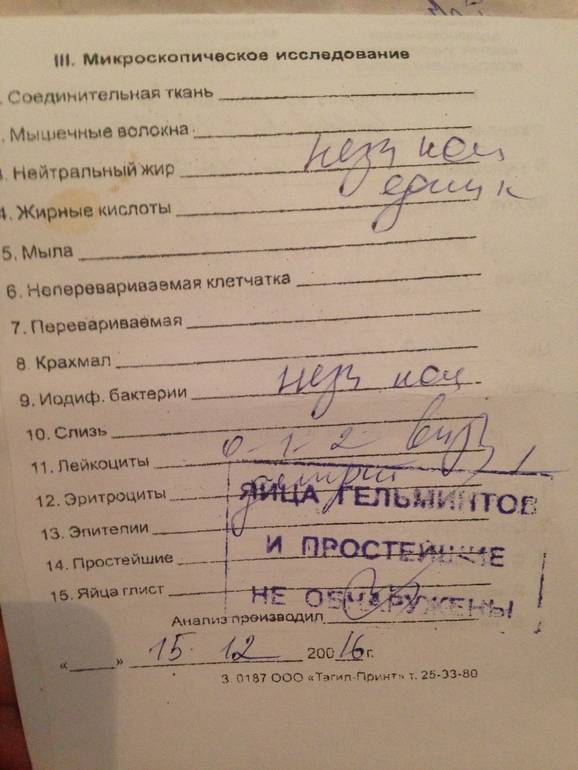 III. Микроскопическое исследование
. Соединительная ткань
. Мышечные волокна
3. Нейтральный жир незн кол
4. Жирные кислоты един к
5. Мыла
6. Неперевариваемая клетчатка
7. Перевариваемая
8. Крахмал
9. Иодиф. бактерии незн кол
10. Слизь
11. Лейкоциты 0-1-2 в п/з
12. Эритроциты
ЯЙЦА ГЕЛЬМИНТОВ
13. Эпителии
И ПРОСТЕЙШИЕ
14. Простейшие
15. Яйца глист
НЕ ОБНАРУЖЕНЫ
Анализ производил
« » 15. 12 200 16 г.
З. 0187 ООО «Тагил-Принт» т. 25-33-80